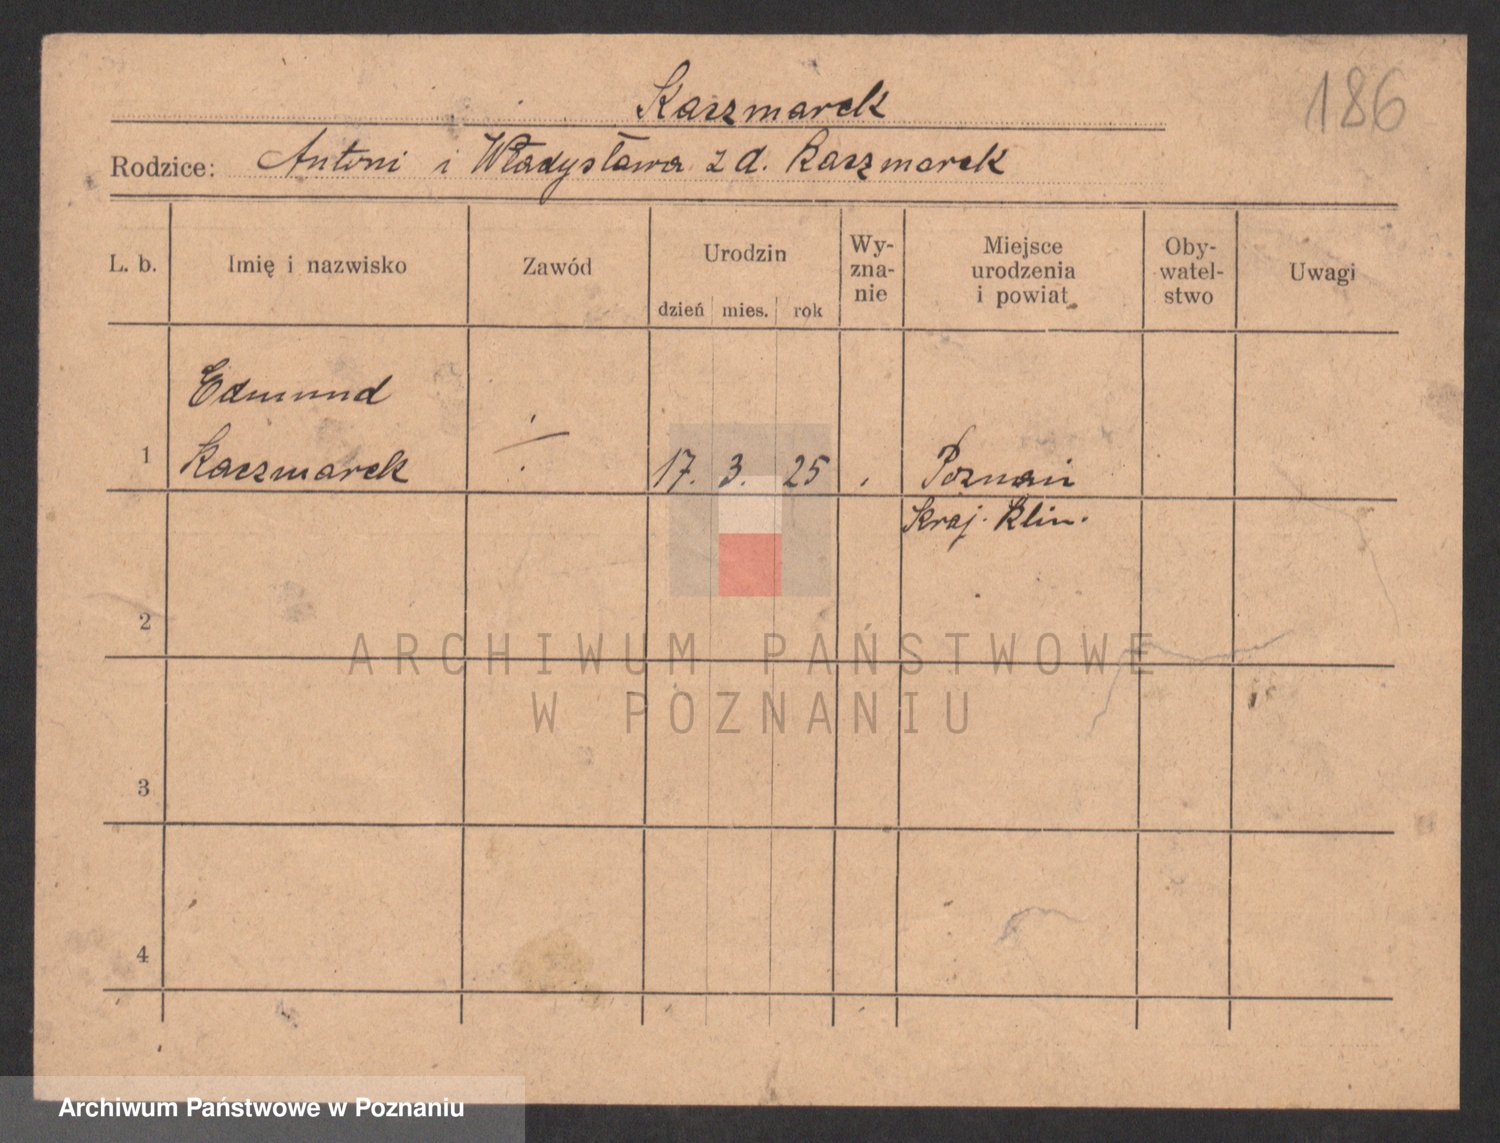 186
Kaczmarek
Rodzice: Antoni i Władysława z d. Kaczmarek
L. b.
Imię i nazwisko
Zawód
Urodzin
dzień mies. rok
Wy-
zna-
nie
Miejsce
urodzenia
i powiat
Oby-
watel-
stwo
Uwagi
Edmund
1 Kaczmarek ÷ 17. 3. 25 Poznań
Kraj. Klin.
2
3
4
ARCHIWUM PAŃSTWOWE
W POZNANIU
Archiwum Państwowe w Poznaniu